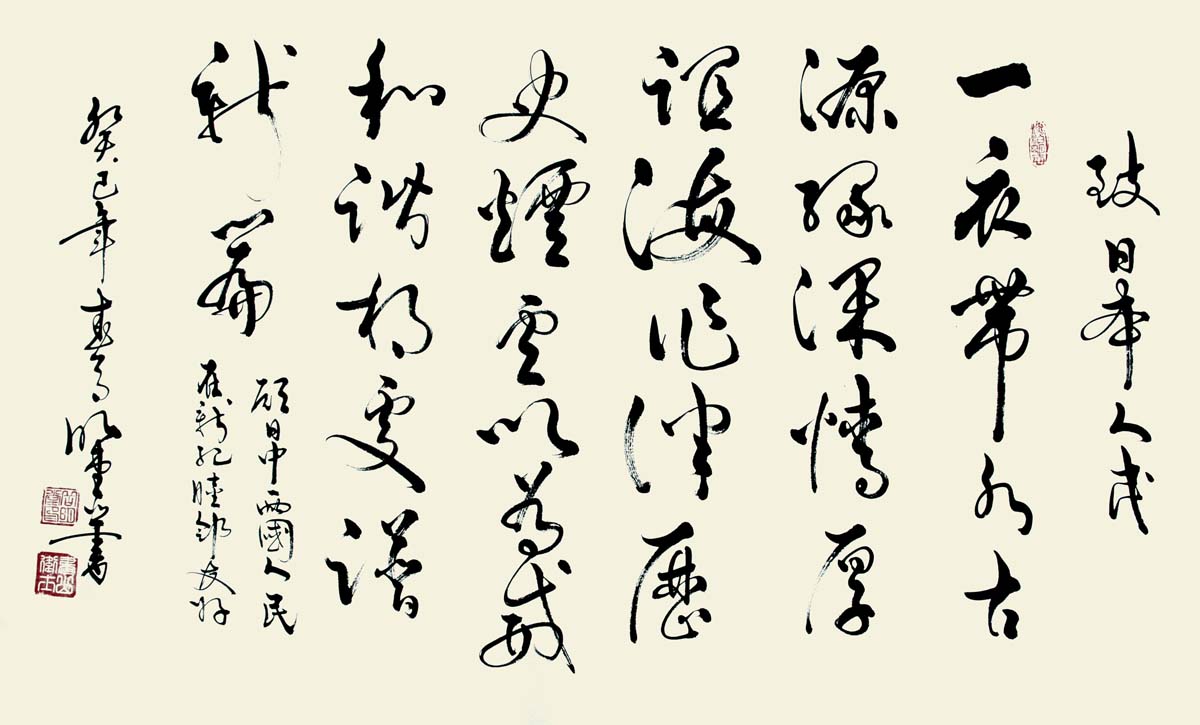 致日本人民
一衣帶水古
源緣深情厚
誼海作津歷
史煙雲以為戒
和諧相處譜
新篇
願日中兩國人民
新紀睦鄰友好
癸巳年春 書